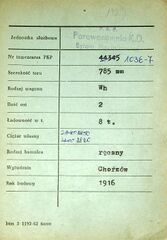 Jednostka służbowa
Parowozownia K.D.
Nr inwentarza PKP 44345 1036-7
Szerokość toru 785 mm
Rodzaj wagonu Wh
Ilość osi 2
Ładowność w t. 8 t.
Ciężar własny
Rodzaj hamulca ręczny
Wytwórnia Chorzów
Rok budowy 1916